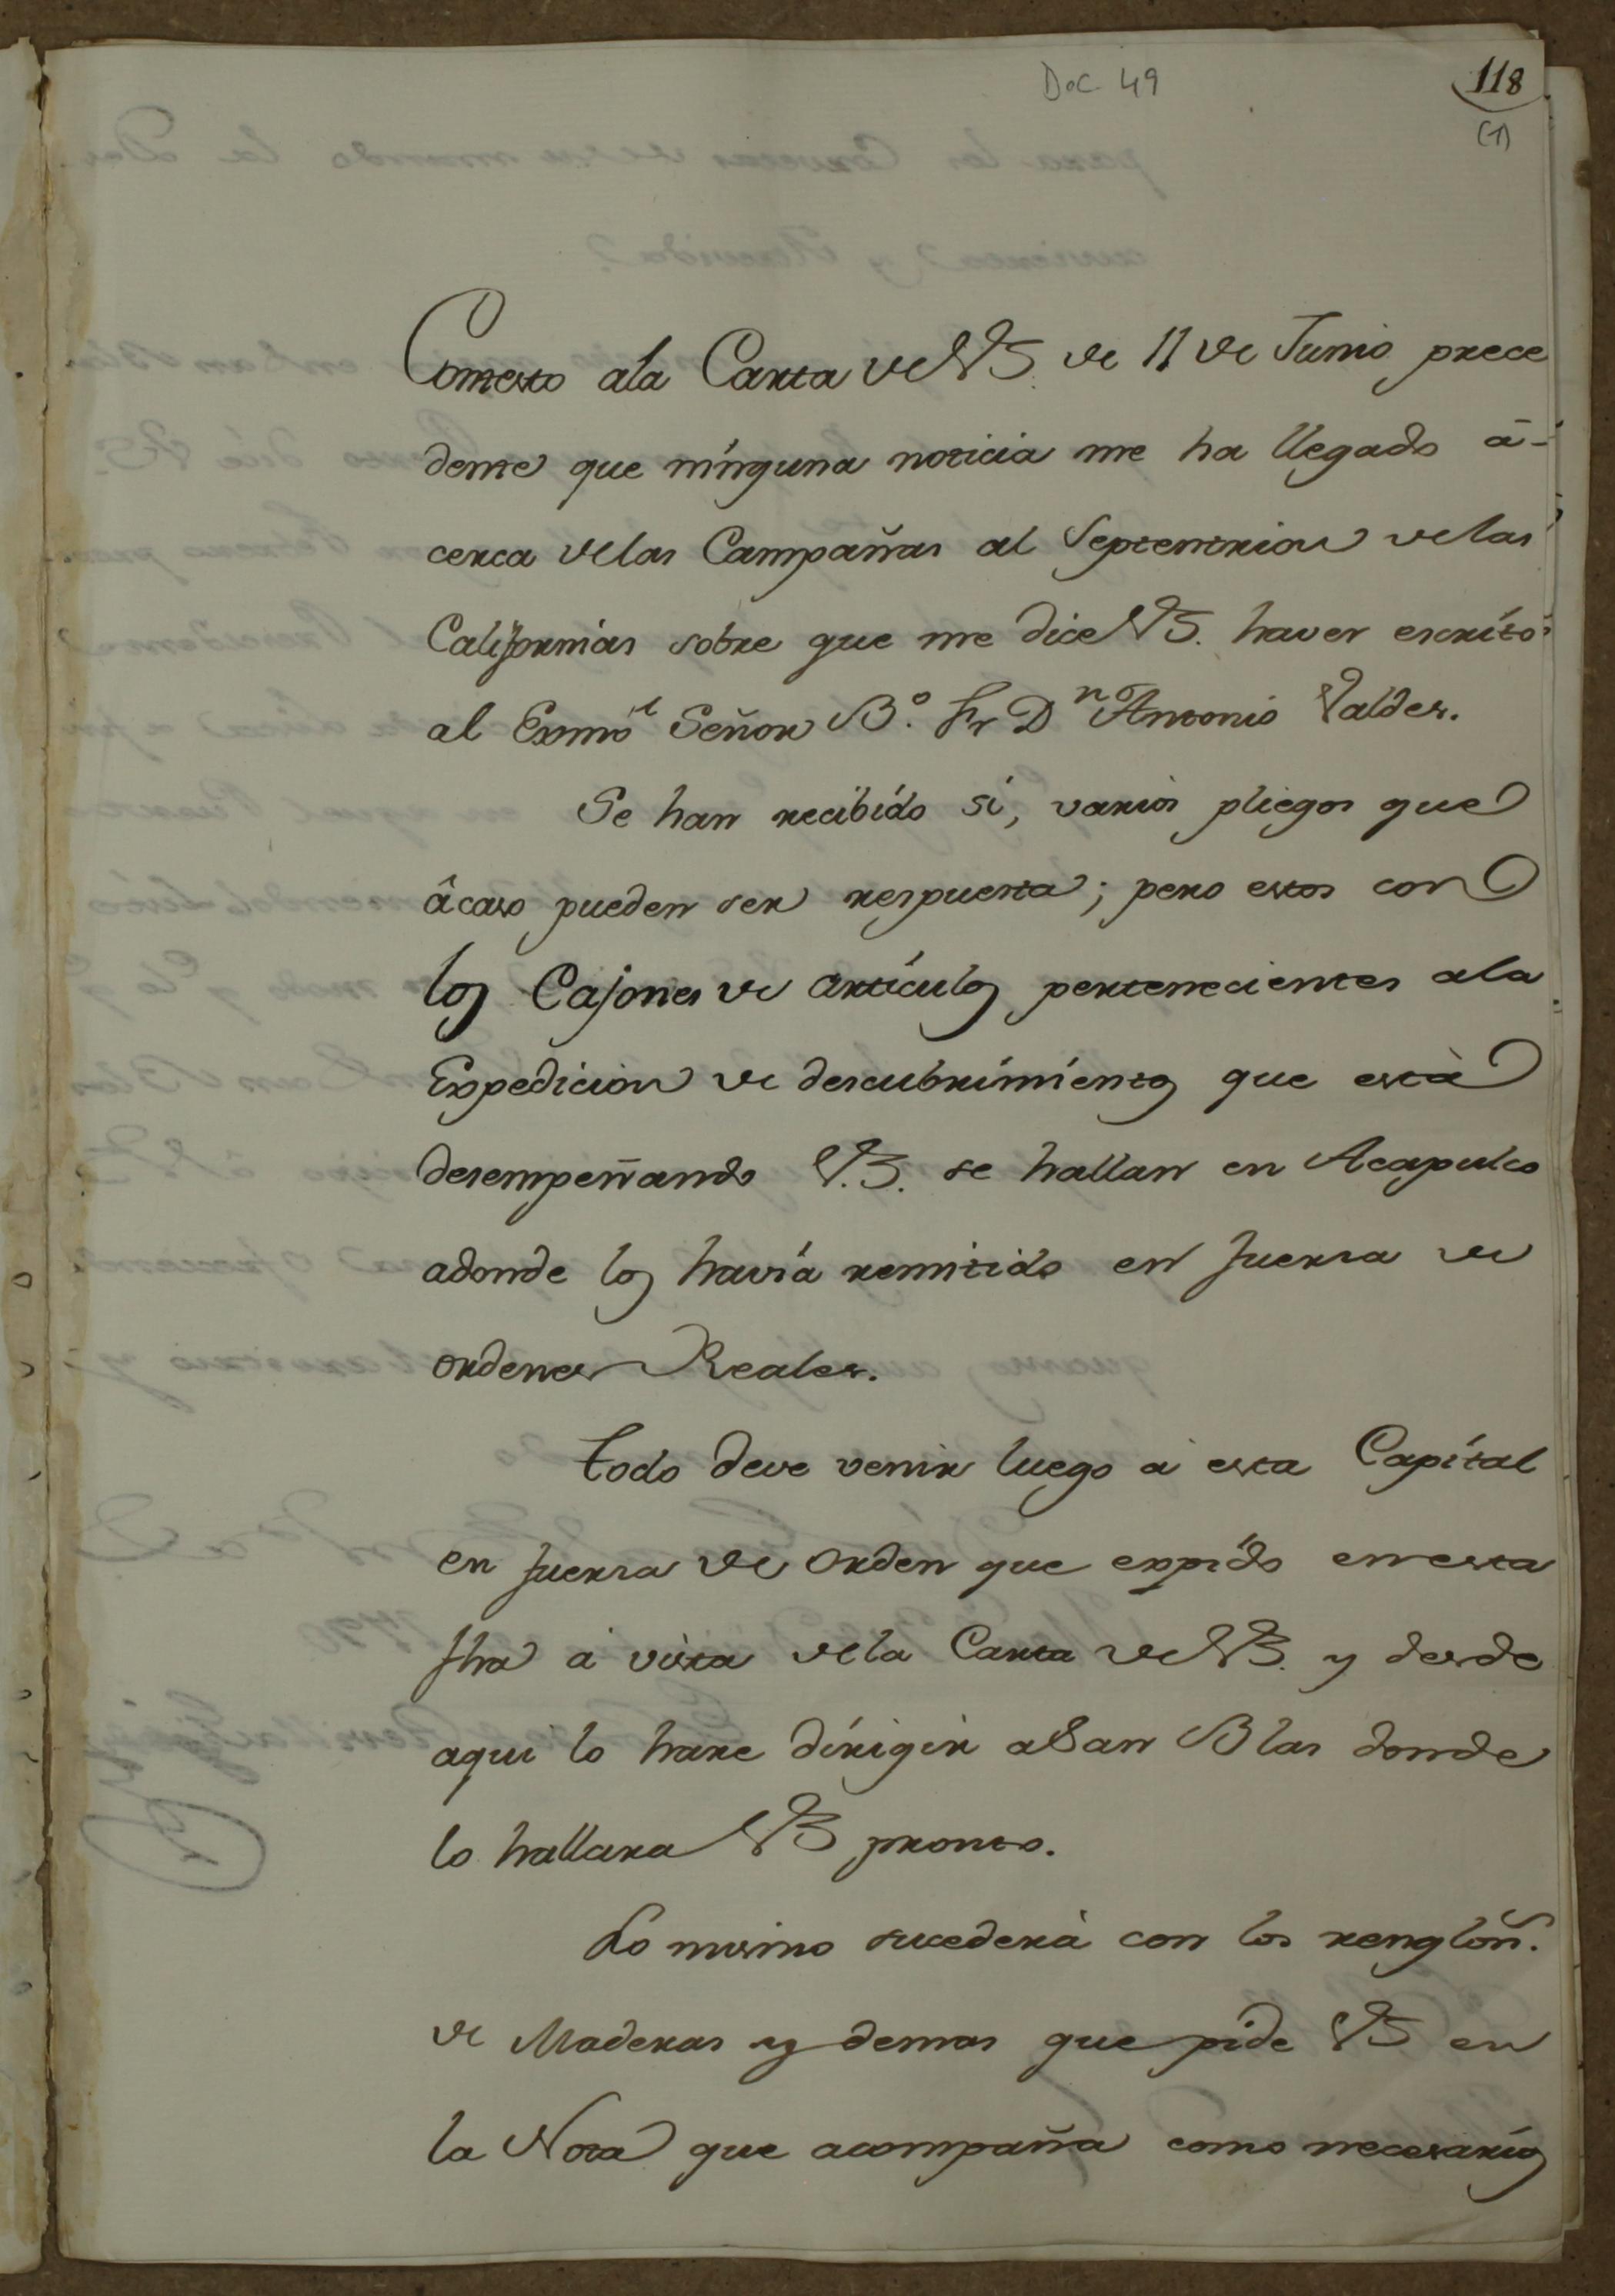 Doc. 49
118
(1)
Contexto ala Carta de VS. de 11 de Junio prece
dente que ninguna noticia me ha llegado â-
cerca delas Campañas al Septentrion delas
Californias sobre que me dice VS. haver escrito
al Exmô Señor Bº. Fr Dn Antonio Valdes.
Se han recibido si, varios pliegos que
âcaso pueden ser respuesta; pero estos con
los Cajones de articulos pertenecientes ala
Expedicion de descubrimientos que està
desempeñando V.S. se hallan en Acapulco
adonde los havía remitido en fuerza de
ordenes Reales.
Todo deve venir luego à esta Capital
en fuerza de orden que expido en esta
fha à vista dela Carta de VS. y desde
aqui lo hare dirigir a San Blas donde
lo hallara VS pronto.
Lo mismo sucederà con los renglon̄.
de Maderas y demas que pide VS en
la Nota que acompaña como necesarios